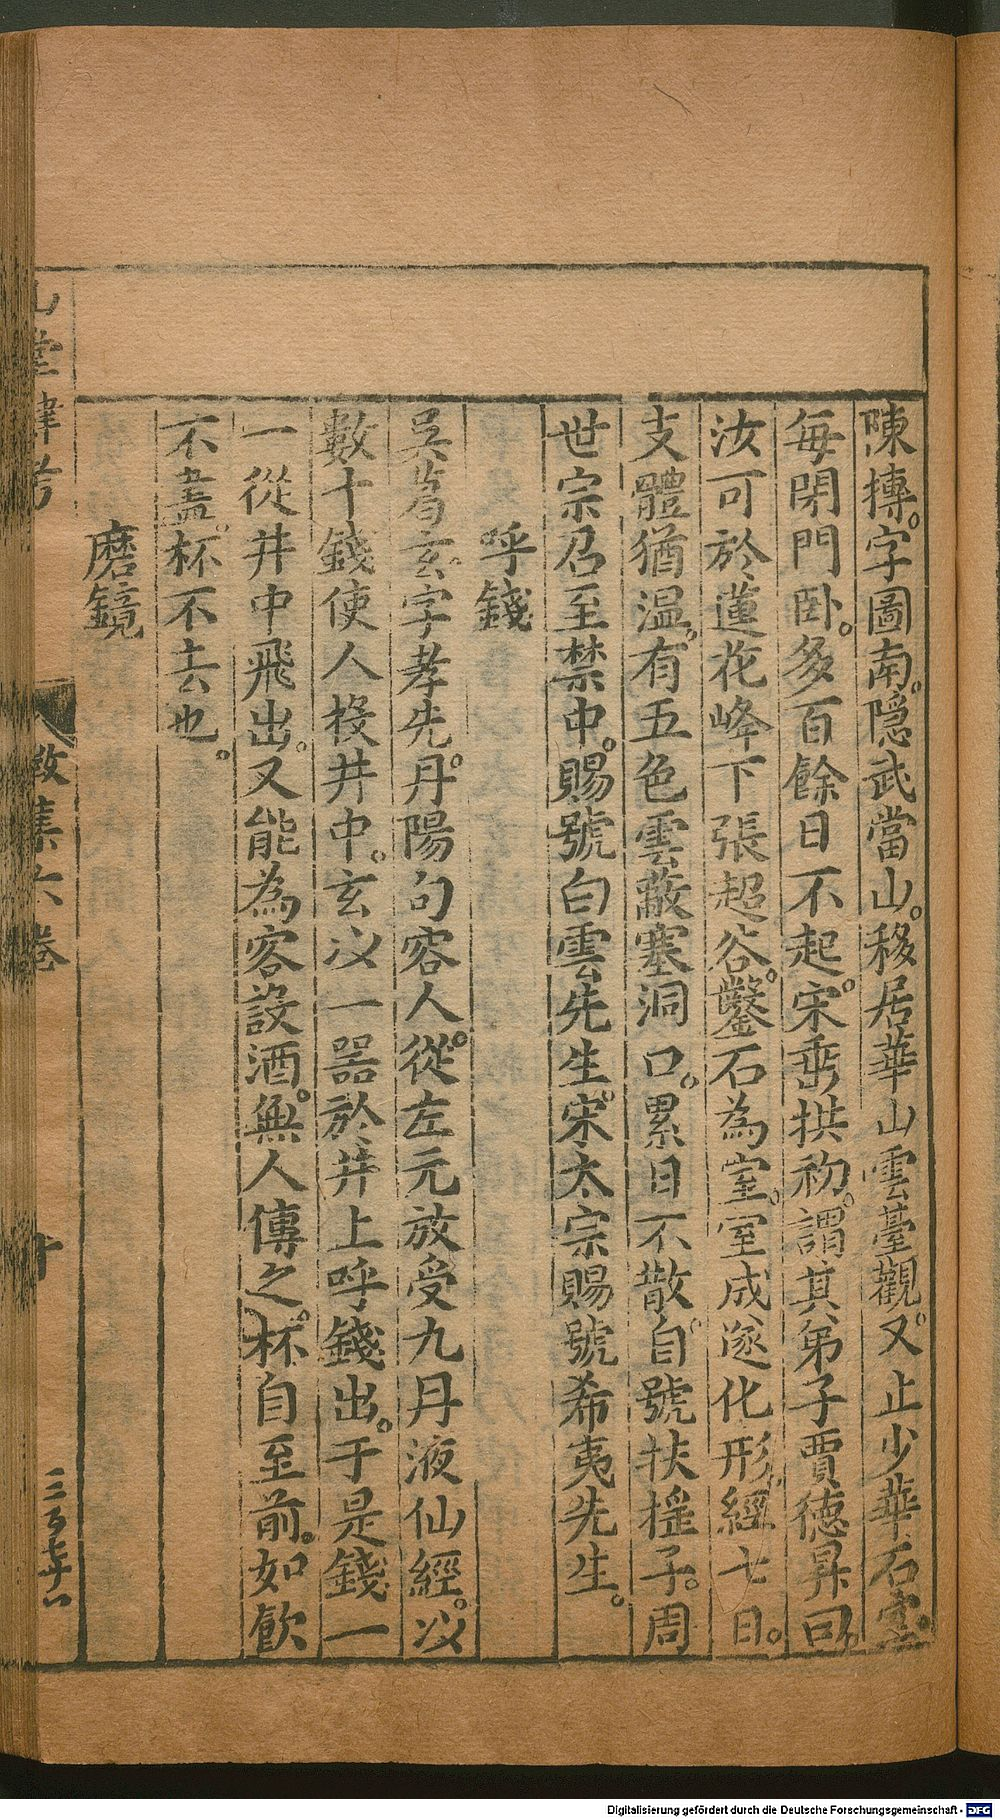 陳摶。字圖南。隠武當山。移居華山雲臺觀。又止少華石室。
毎閉門卧。多百餘日不起。宋端拱初。謂其弟子賈德昇曰。
汝可於蓮花峰下張超谷。鑿石為室。室成遂化形。經七日。
支體猶温。有五色雲蔽塞洞口。累日不散。自號扶摇子。周
世宗召至禁中。賜號白雲先生。宋太宗賜號希夷先生。
呼錢
吳葛玄。字孝先。丹陽句容人。從左元放受九丹液仙經。以
數十錢使人投井中。玄以一器於井上呼錢出。于是錢一
一從井中飛出。又能為客設酒。無人傳之。杯自至前。如飲
不盡。杯不去也。
磨鏡
山堂肆考
徵集六卷
十
Digitalisierung gefördert durch die Deutsche Forschungsgemeinschaft - DFG